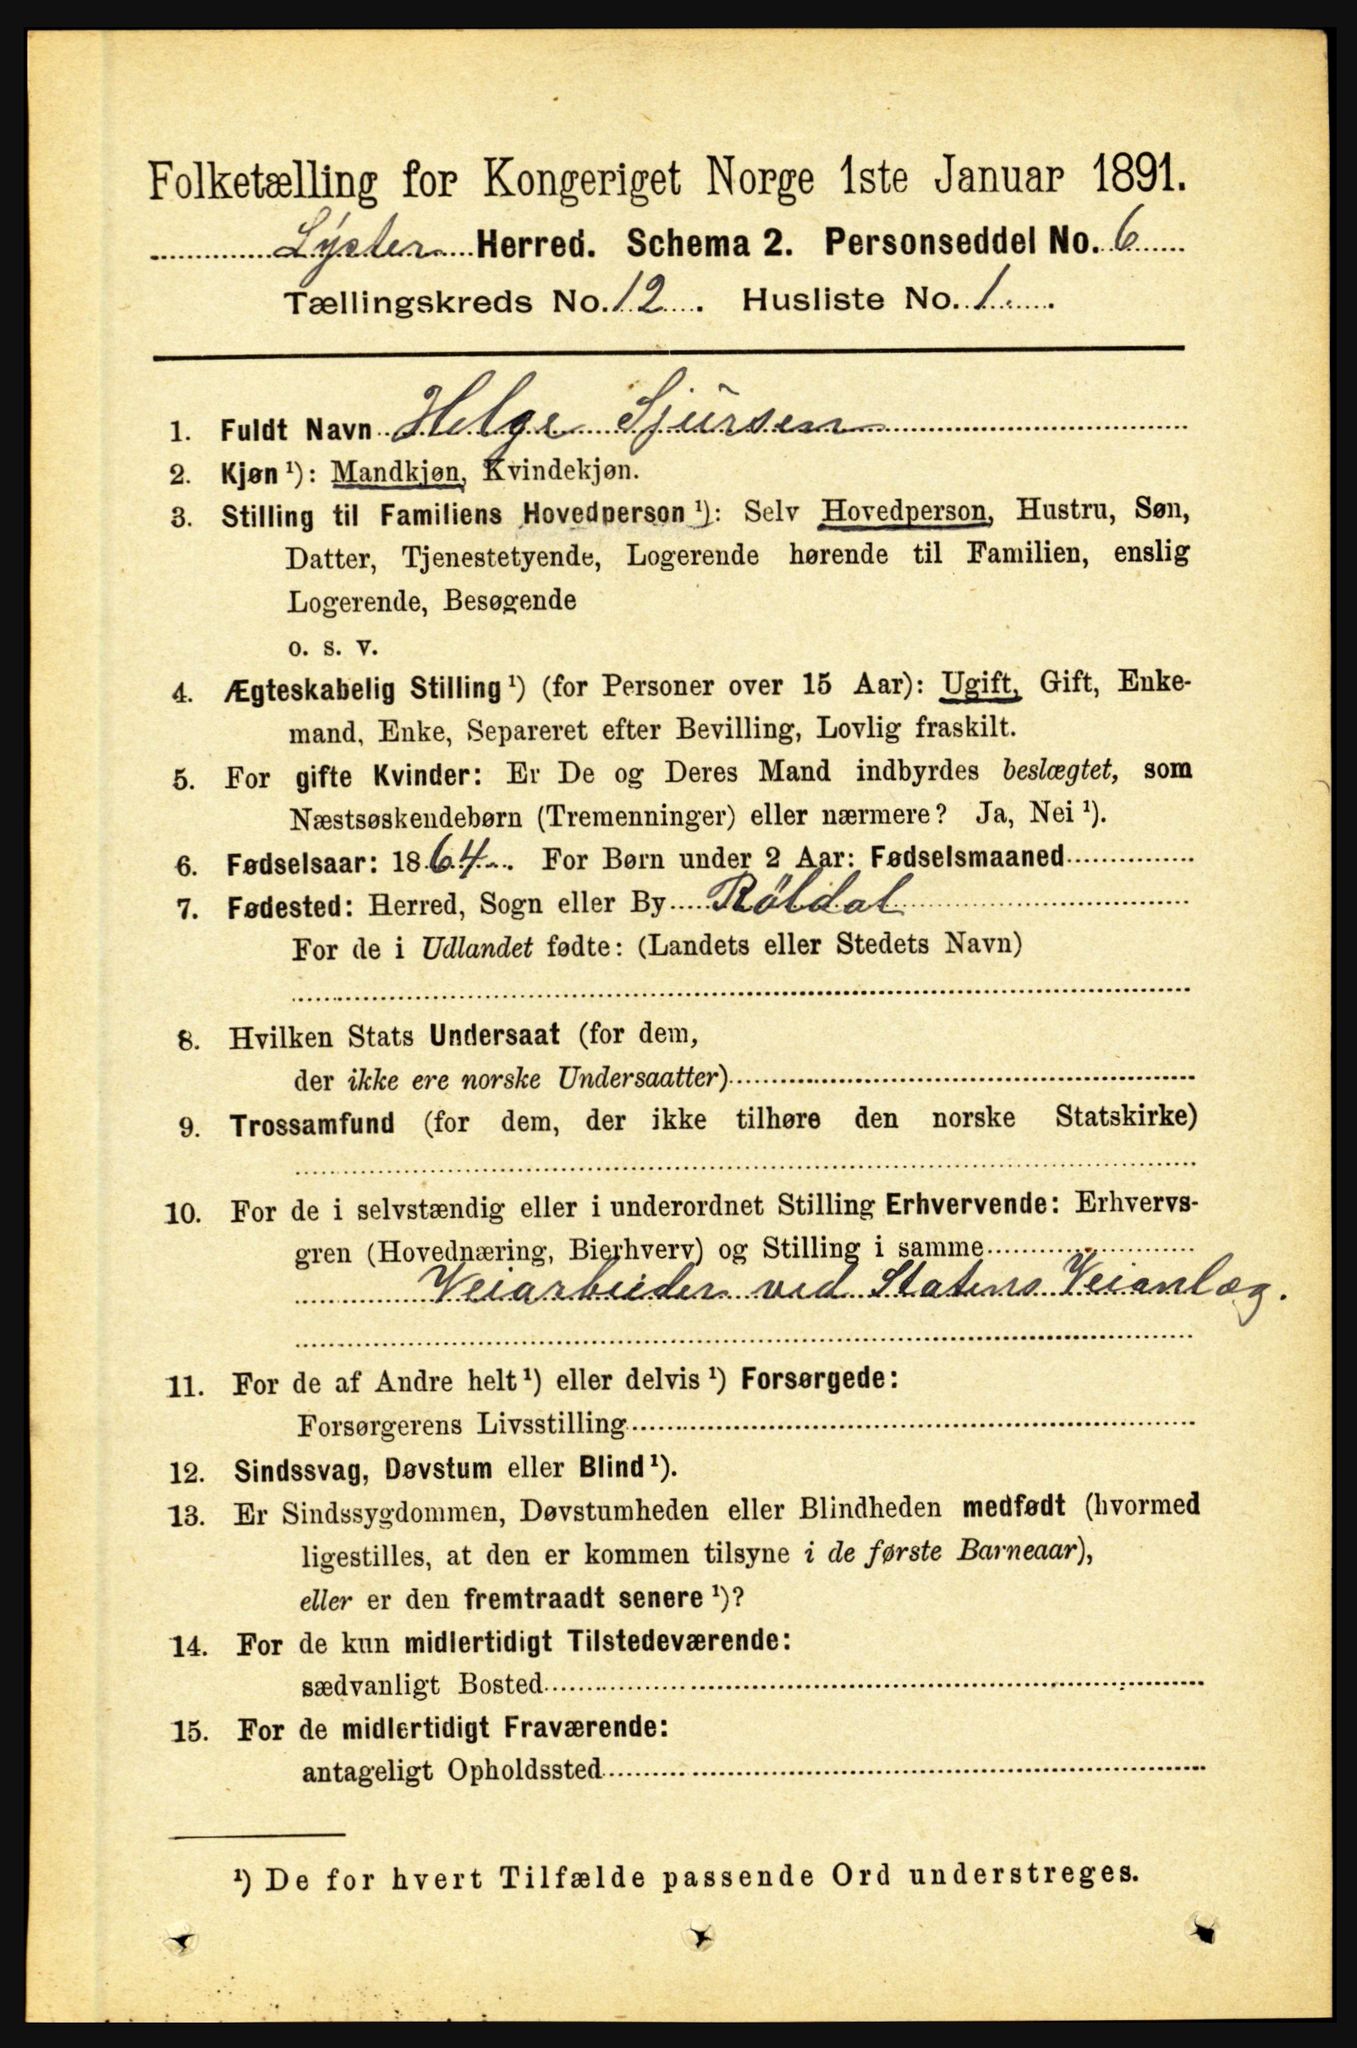 Folketælling for Kongeriget Norge 1ste Januar 1891.
Lyster Herred. Schema 2. Personseddel No. 6
Tællingskreds No. 12. Husliste No. 1.
1. Fuldt Navn Helge Sjursen
2. Kjøn ¹): Mandkjøn, Kvindekjøn.
3. Stilling til Familiens Hovedperson ¹): Selv Hovedperson, Hustru, Søn,
Datter, Tjenestetyende, Logerende hørende til Familien, enslig
Logerende, Besøgende
o. s. v.
4. Ægteskabelig Stilling ¹) (for Personer over 15 Aar): Ugift, Gift, Enke-
mand, Enke, Separeret efter Bevilling, Lovlig fraskilt.
5. For gifte Kvinder: Er De og Deres Mand indbyrdes beslægtet, som
Næstsøskendebørn (Tremenninger) eller nærmere? Ja, Nei ¹).
6. Fødselsaar: 1864. For Børn under 2 Aar: Fødselsmaaned
7. Fødested: Herred, Sogn eller By Røldal
For de i Udlandet fødte: (Landets eller Stedets Navn)
8. Hvilken Stats Undersaat (for dem,
der ikke ere norske Undersaatter)
9. Trossamfund (for dem, der ikke tilhøre den norske Statskirke)
10. For de i selvstændig eller i underordnet Stilling Erhvervende: Erhvervs-
gren (Hovednæring, Bierhverv) og Stilling i samme
Veiarbeider ved Statens Veianlæg.
11. For de af Andre helt ¹) eller delvis ¹) Forsørgede:
Forsørgerens Livsstilling
12. Sindssvag, Døvstum eller Blind ¹).
13. Er Sindssygdommen, Døvstumheden eller Blindheden medfødt (hvormed
ligestilles, at den er kommen tilsyne i de første Barneaar),
eller er den fremtraadt senere ¹)?
14. For de kun midlertidigt Tilstedeværende:
sædvanligt Bosted
15. For de midlertidigt Fraværende:
antageligt Opholdssted
¹) De for hvert Tilfælde passende Ord understreges.